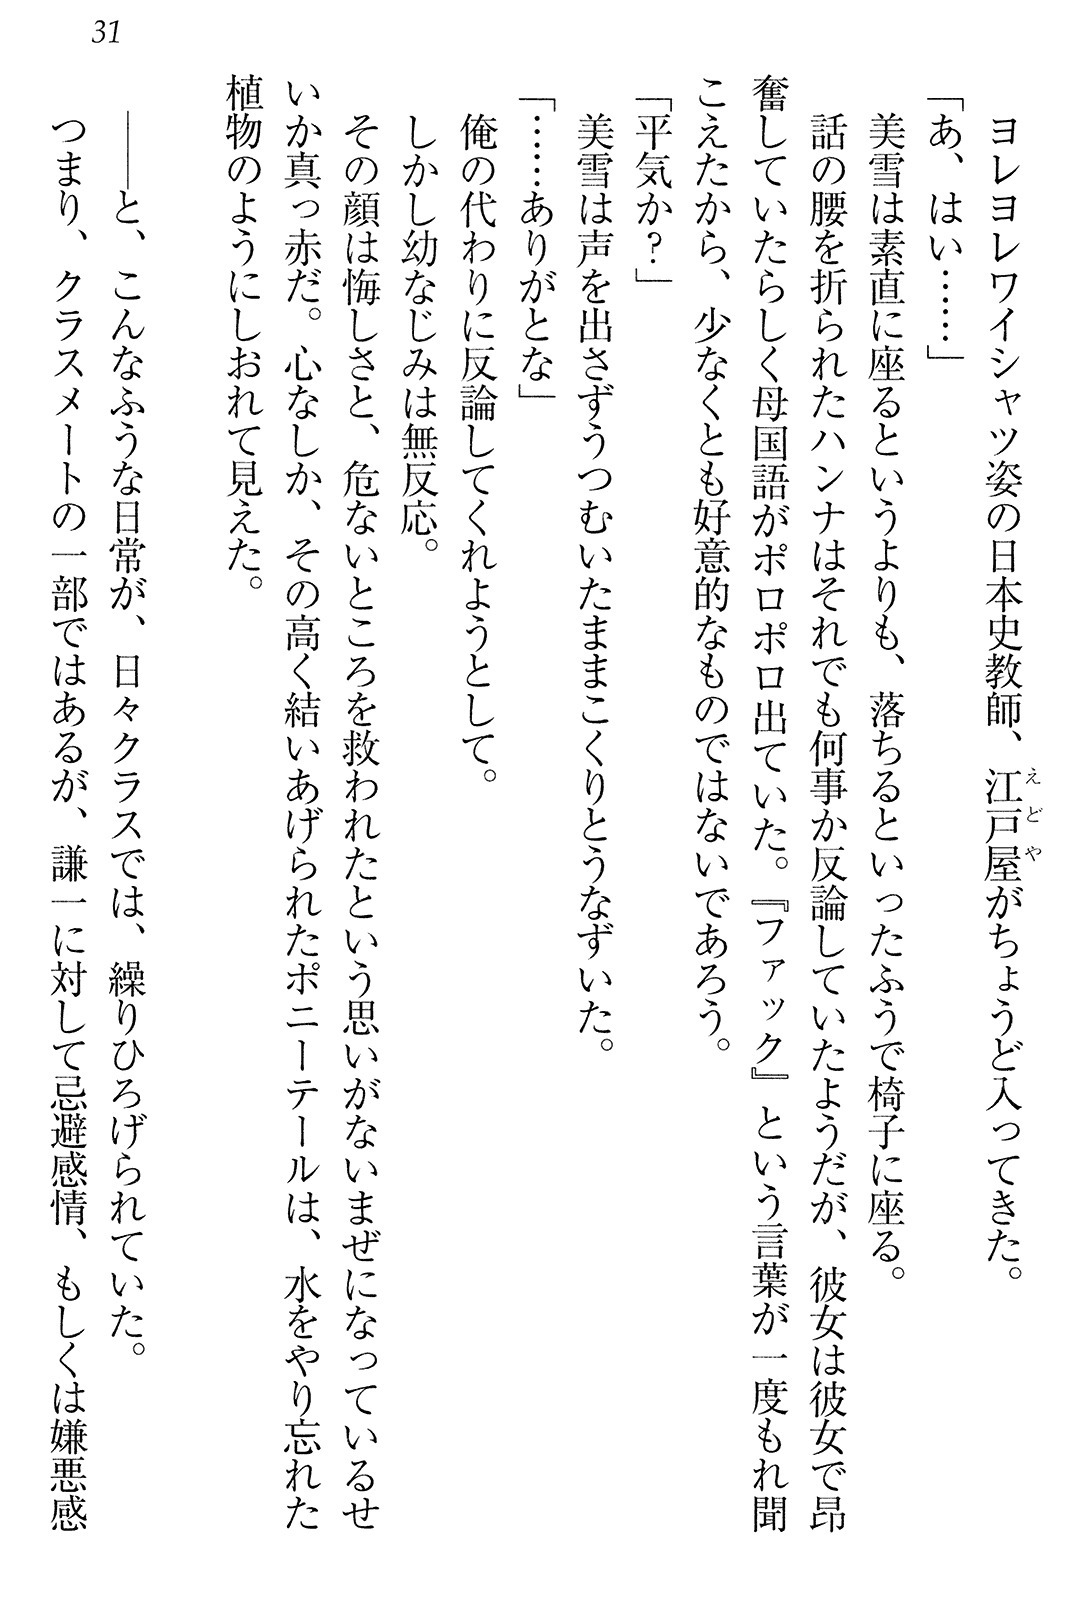 31
ヨレヨレワイシャツ姿の日本史教師、江戸屋がちょうど入ってきた。
えどや
「あ、はい……」
美雪は素直に座るというよりも、落ちるといったふうで椅子に座る。
話の腰を折られたハンナはそれでも何事か反論していたようだが、彼女は彼女で昂
奮していたらしく母国語がポロポロ出ていた。『ファック』という言葉が一度もれ聞
こえたから、少なくとも好意的なものではないであろう。
「平気か？」
美雪は声を出さずうつむいたままこくりとうなずいた。
「……ありがとな」
俺の代わりに反論してくれようとして。
しかし幼なじみは無反応。
その顔は悔しさと、危ないところを救われたという思いがないまぜになっているせ
いか真っ赤だ。心なしか、その高く結いあげられたポニーテールは、水をやり忘れた
植物のようにしおれて見えた。
――と、こんなふうな日常が、日々クラスでは、繰りひろげられていた。
つまり、クラスメートの一部ではあるが、謙一に対して忌避感情、もしくは嫌悪感